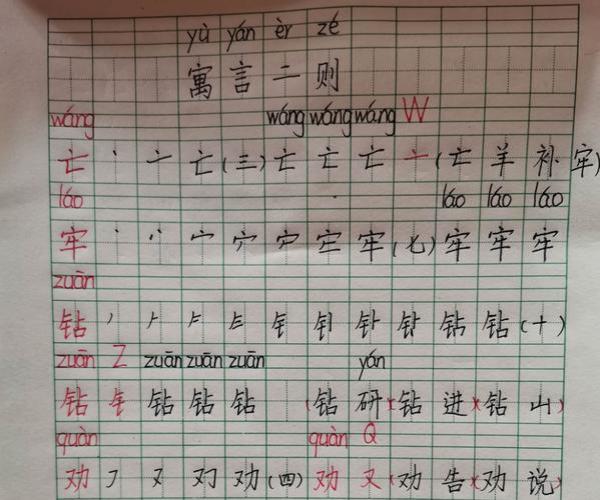 yù yán èr zé
寓言二则
wáng wáng wáng wáng W
亡 丶 亠 亡 (三) 亡 亡 亡 亠 (亡羊补牢)
láo láo láo láo
牢 牢 (七) 牢 牢 牢
zuān
钻 丿 钻 钻 (十)
zuān Z zuān zuān zuān yán
钻 钅 钻 钻 钻 (钻研)(钻进)(钻山)
quàn quàn Q
劝 フ 又 劝 劝 (四) 劝 又 (劝告)(劝说)